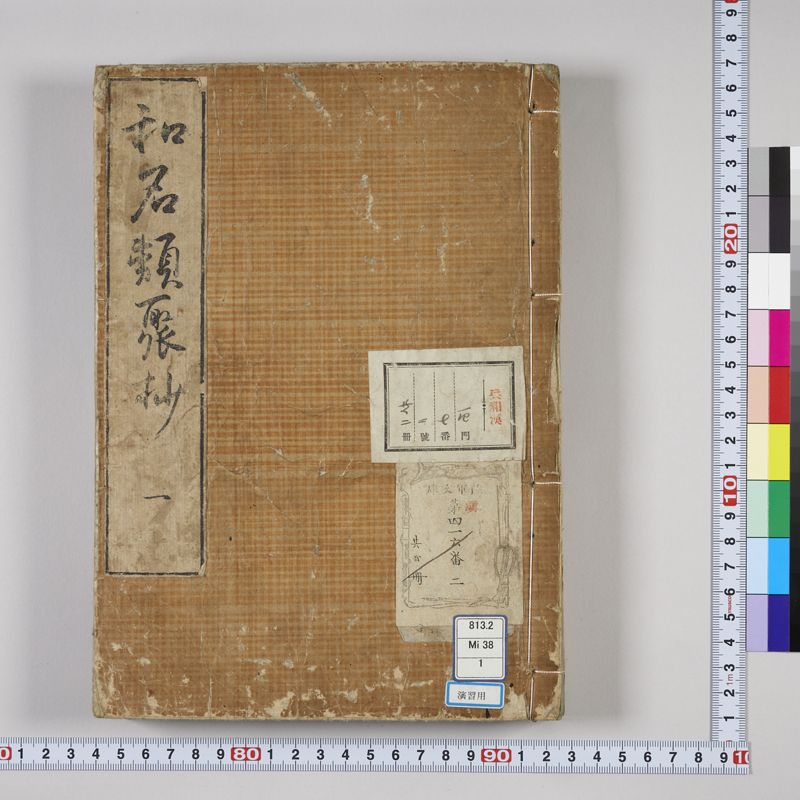 和名類聚抄 一
門
番
號
冊
第四一六番 二
共 冊
813.2
Mi 38
1
演習用
9
8
7
6
5
4
3
2
1
20
9
8
7
6
5
4
3
2
1
10
9
8
7
6
5
4
3
2
1
1m
0 1 2 3 4 5 6 7 8 9 80 1 2 3 4 5 6 7 8 9 90 1 2 3 4 5 6 7 8 9 10